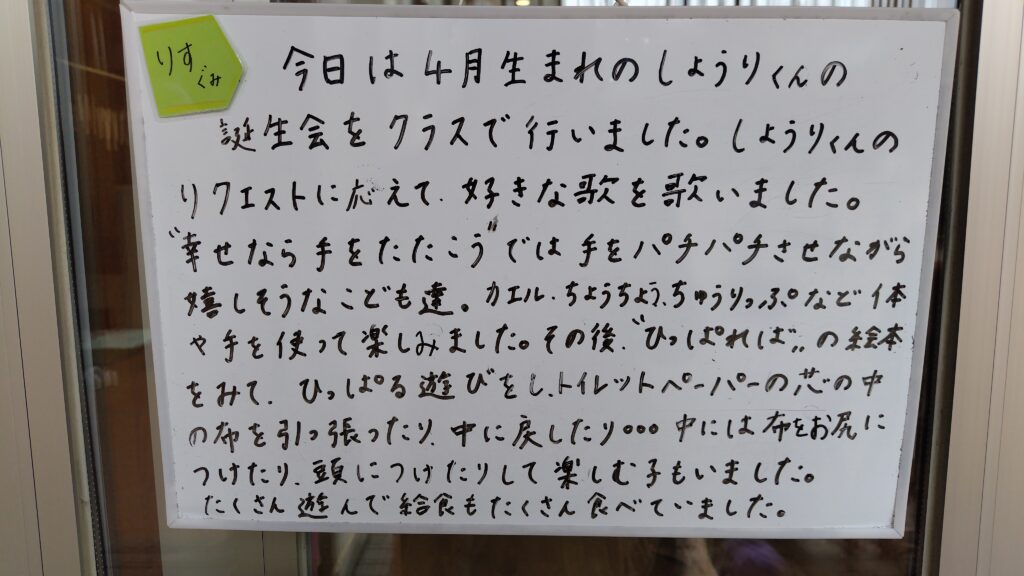 りす
ぐみ
今日は4月生まれのしょうりくんの
誕生会をクラスで行いました。しょうりくんの
リクエストに応えて、好きな歌を歌いました。
"幸せなら手をたたこう"では手をパチパチさせながら
嬉しそうなこども達。カエル、ちょうちょう、ちゅうりっぷなど体
や手を使って楽しみました。その後、"ひっぱれば"の絵本
をみて、ひっぱる遊びをし、トイレットペーパーの芯の中
の布を引っ張ったり、中に戻したり…中には布をお尻に
つけたり、頭につけたりして楽しむ子もいました。
たくさん遊んで給食もたくさん食べていました。